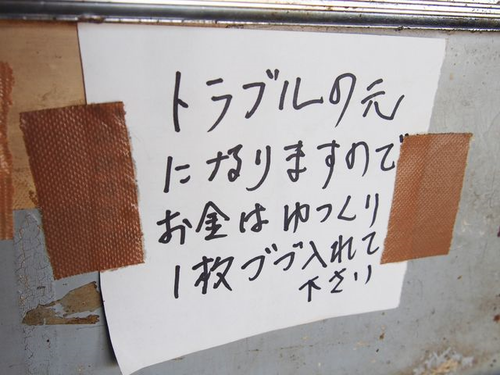 トラブルの元
になりますので
お金はゆっくり
1枚づづ入れて
下さい